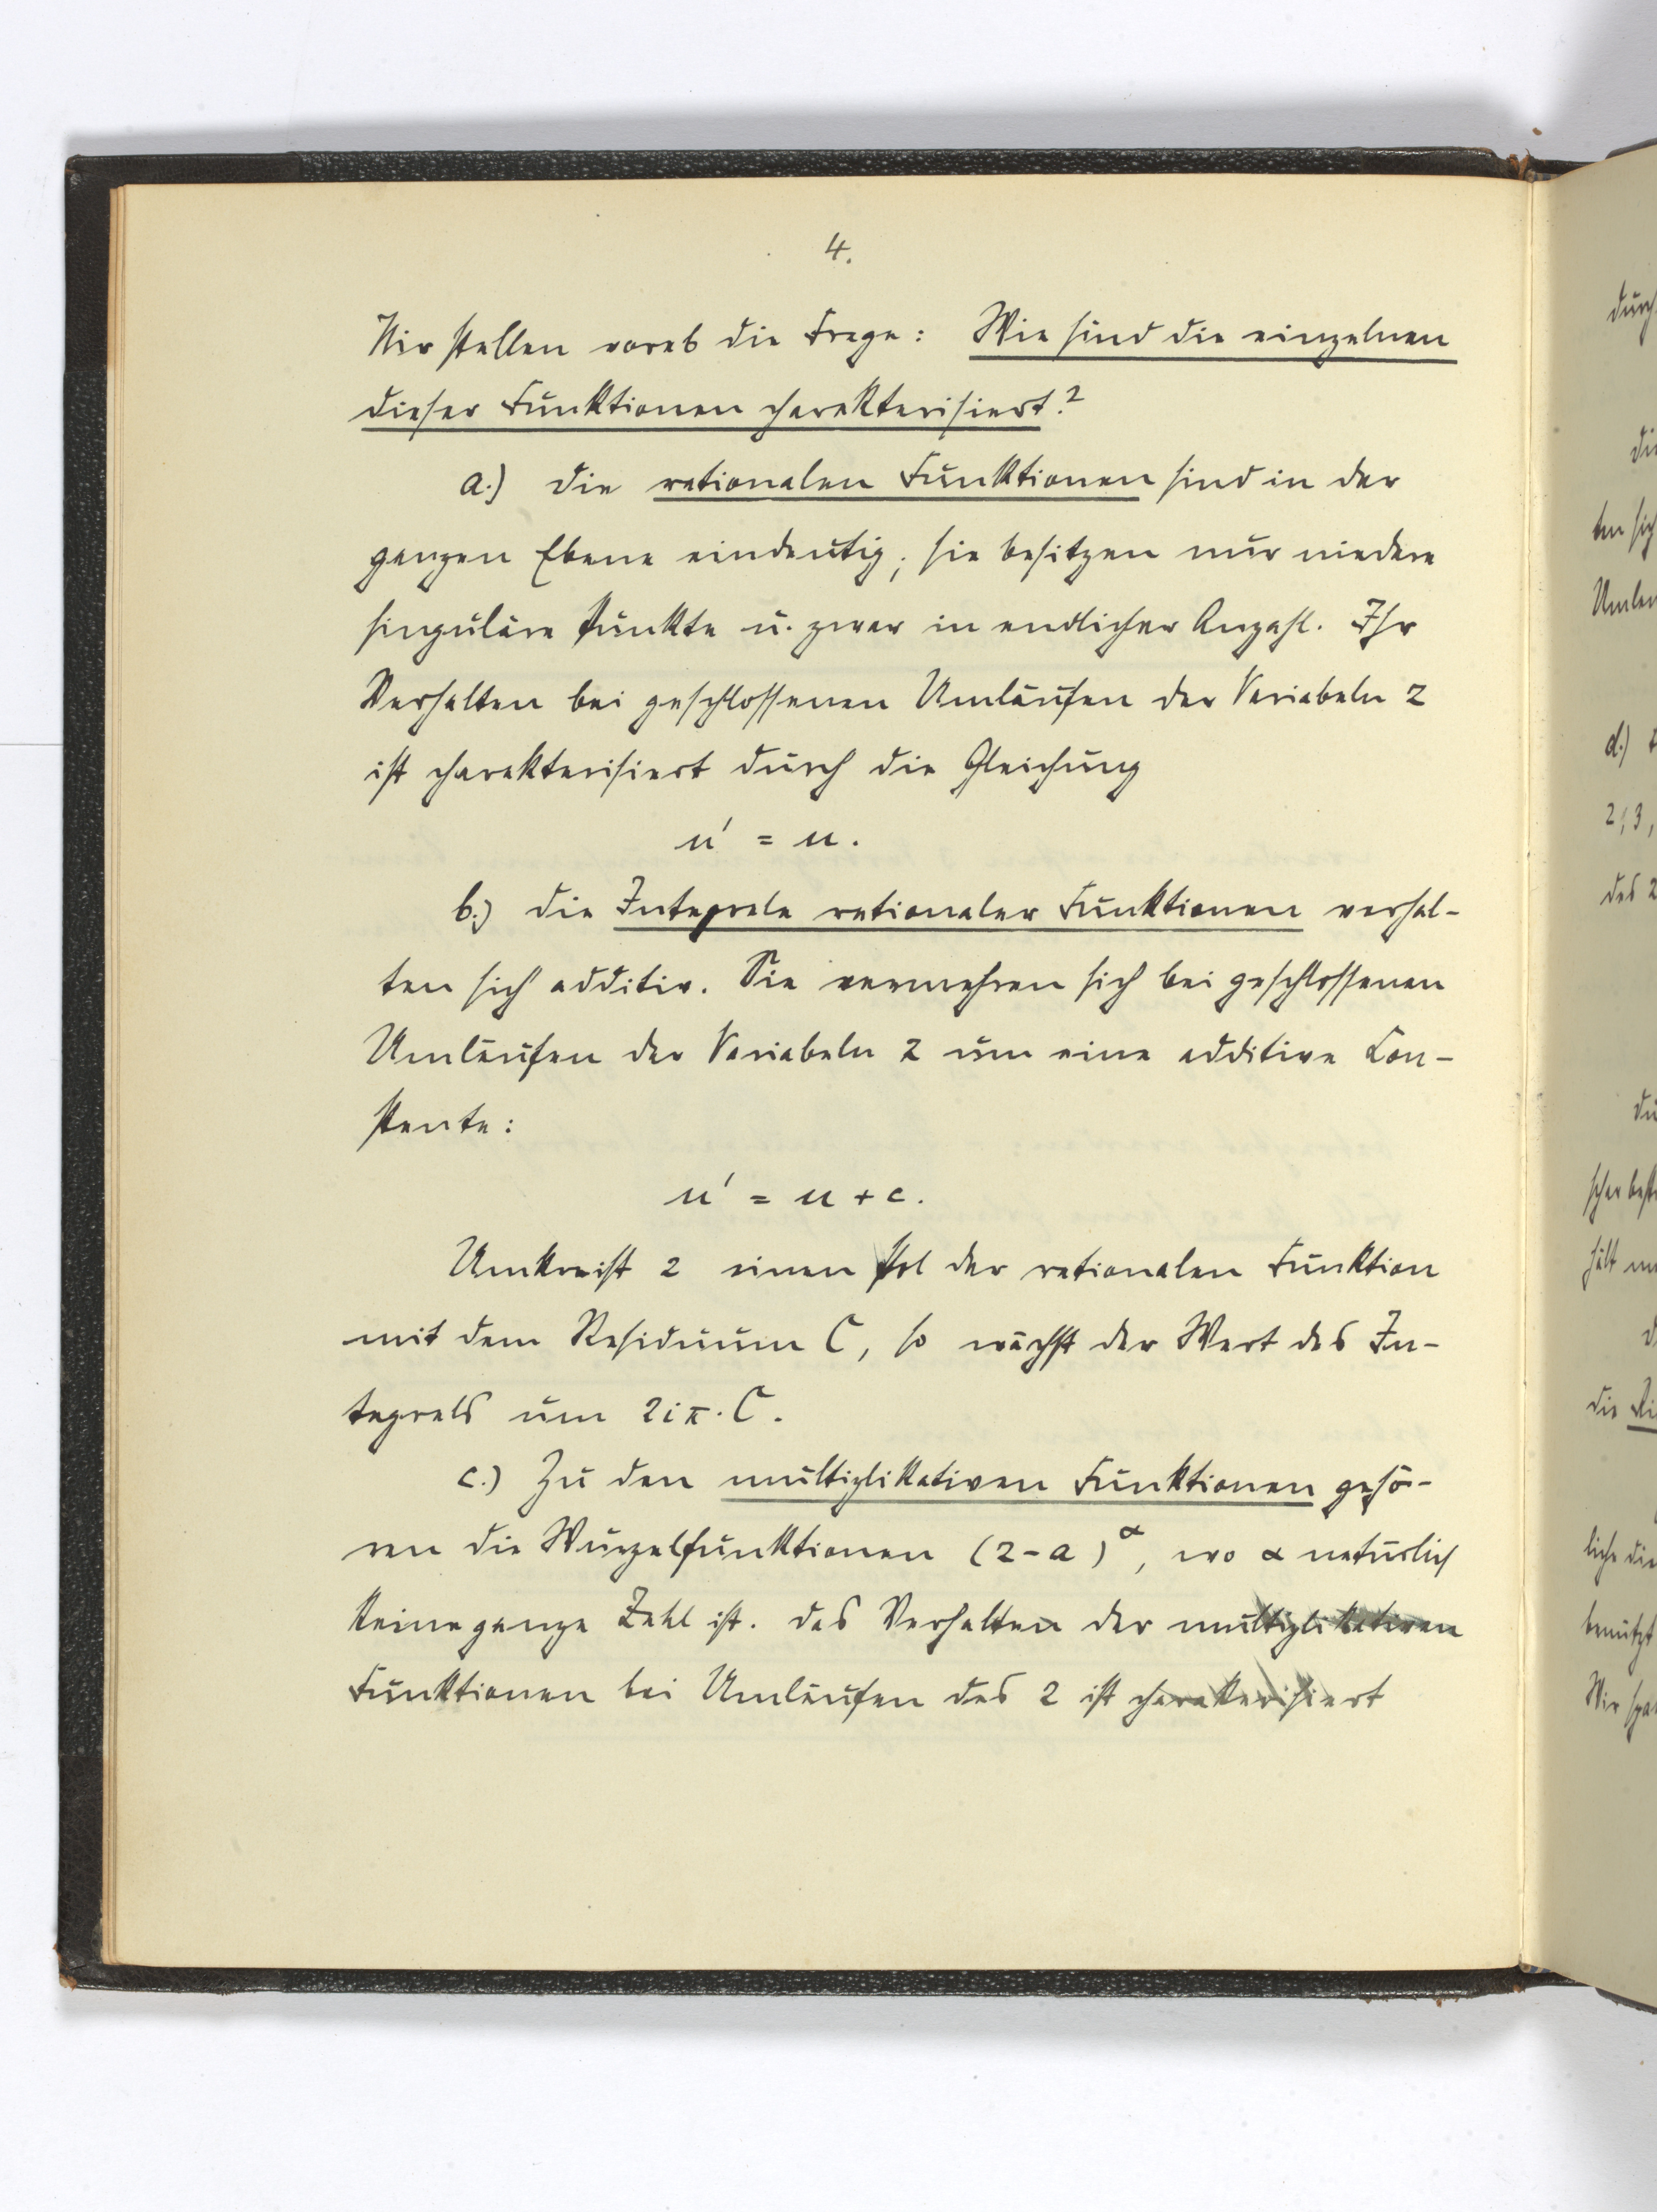 4.
Wir stellen vorab die Frage: Wie sind die einzelnen
dieser Funktionen charakterisiert?
a.) Die rationalen Funktionen sind in der
ganzen Ebene eindeutig; sie besitzen nur niedere
singuläre Punkte u. zwar in endlicher Anzahl. Ihr
Verhalten bei geschlossenen Umläufen der Variabeln z
ist charakterisiert durch die Gleichung
u' = u.
b.) Die Integrale rationaler Funktionen verhal-
ten sich additiv. Sie vermehren sich bei geschlossenen
Umläufen der Variabeln z um eine additive Con-
stante:
u' = u + c.
Umkreist z einen Pol der rationalen Funktion
mit dem Residuum C, so wächst der Wert des In-
tegrals um 2iπ·C.
c.) Zu den multiplikativen Funktionen gehö-
ren die Wurzelfunktionen (z-a)^α, wo α natürlich
keine ganze Zahl ist. Das Verhalten der multiplikativen
Funktionen bei Umläufen des z ist charakterisiert
durch
die
ten sich
d.)
2, 3,
des z
die
liche die
benutzt
Wir